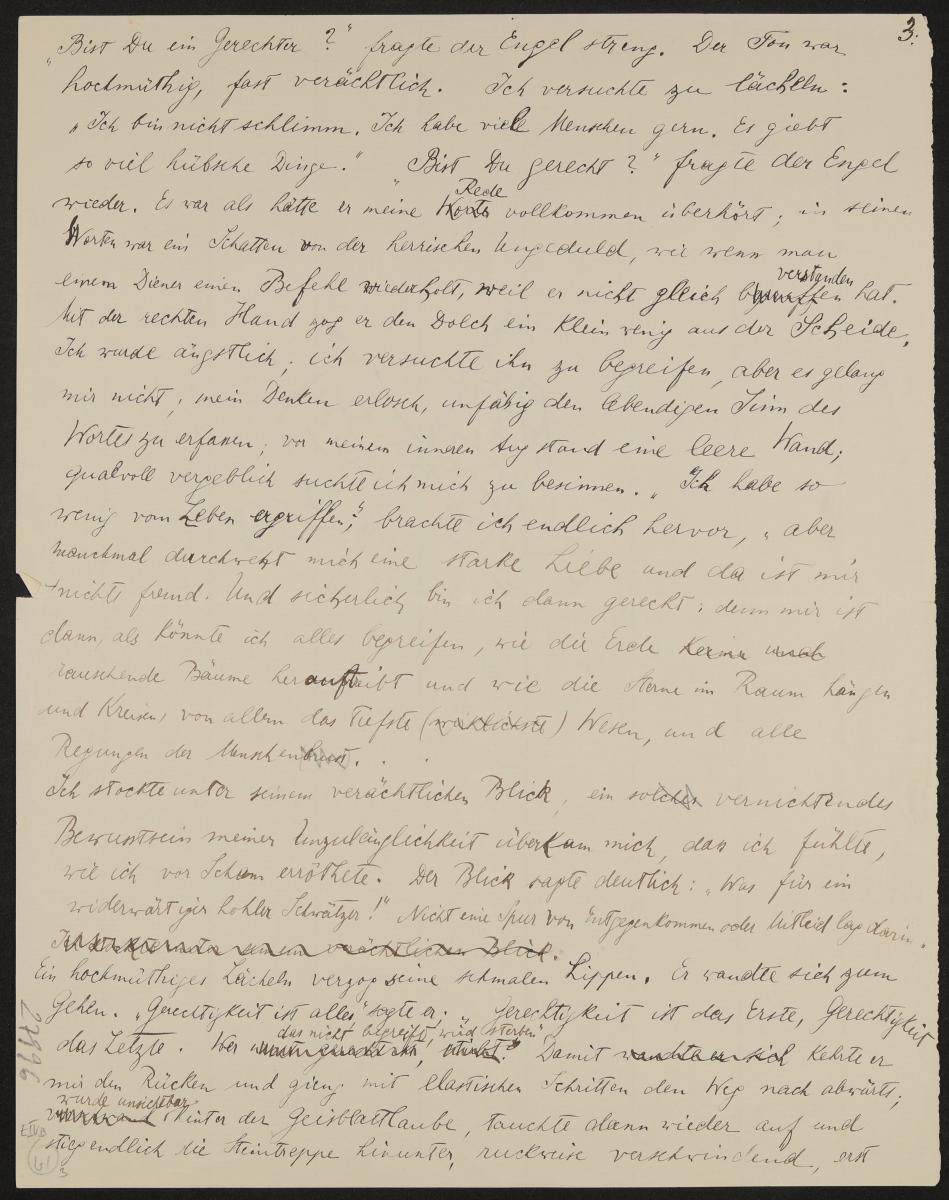 3.
„Bist Du ein Gerechter?" fragte der Engel streng. Der Ton war
hochmüthig, fast verächtlich. Ich versuchte zu lächeln:
„Ich bin nicht schlimm. Ich habe viele Menschen gern. Es giebt
so viel hübsche Dinge." „Bist Du gerecht?" fragte der Engel
Rede
wieder. Es war als hätte er meine Worte vollkommen überhört; in seinen
Worten war ein Schatten von der herrischen Ungeduld, wie wenn man
verstanden
einem Diener einen Befehl wiederholt, weil er nicht gleich begriffen hat.
Mit der rechten Hand zog er den Dolch ein klein wenig aus der Scheide.
Ich wurde ängstlich; ich versuchte ihn zu begreifen, aber es gelang
mir nicht; mein Denken erlosch, unfähig den lebendigen Sinn des
Wortes zu erfassen; vor meinem inneren Aug stand eine leere Wand;
qualvoll vergeblich suchte ich mich zu besinnen. „Ich habe so
wenig vom Leben ergriffen", brachte ich endlich hervor, „aber
manchmal durchweht mich eine starke Liebe und da ist mir
nichts fremd. Und sicherlich bin ich dann gerecht: denn mir ist
dann, als könnte ich alles begreifen, wie die Erde Keime und
rauschende Bäume herauftreibt und wie die Sterne im Raum hängen
und Kreisen, von allem das tiefste (wirklichste) Wesen, und alle
Regungen der Menschenbrust. . .
Ich stockte unter seinem verächtlichen Blick, ein solches vernichtendes
Bewusstsein meiner Unzulänglichkeit überkam mich, dass ich fühlte,
wie ich vor Scham erröthete. Der Blick sagte deutlich: „Was für ein
widerwärtiger hohler Schwätzer!" Nicht eine Spur von Entgegenkommen oder Mitleid lag darin.
Ich stockte unter seinem verächtlichen Blick.
Ein hochmüthiges Lächeln verzog seine schmalen Lippen. Er wandte sich zum
Gehen. „Gerechtigkeit ist alles" sagte er; „Gerechtigkeit ist das Erste, Gerechtigkeit
das nicht begreift, wird sterben"
das Letzte. Wer nicht gerecht ist, stirbt." Damit wandte er sich kehrte er
mir den Rücken und gieng mit elastischen Schritten den Weg nach abwärts;
wurde unsichtbar
verschwand hinter der Geisblattlaube, tauchte dann wieder auf und
stieg endlich die Steintreppe hinunter, ruckweise verschwindend, erst
27896
EIVB
61
3